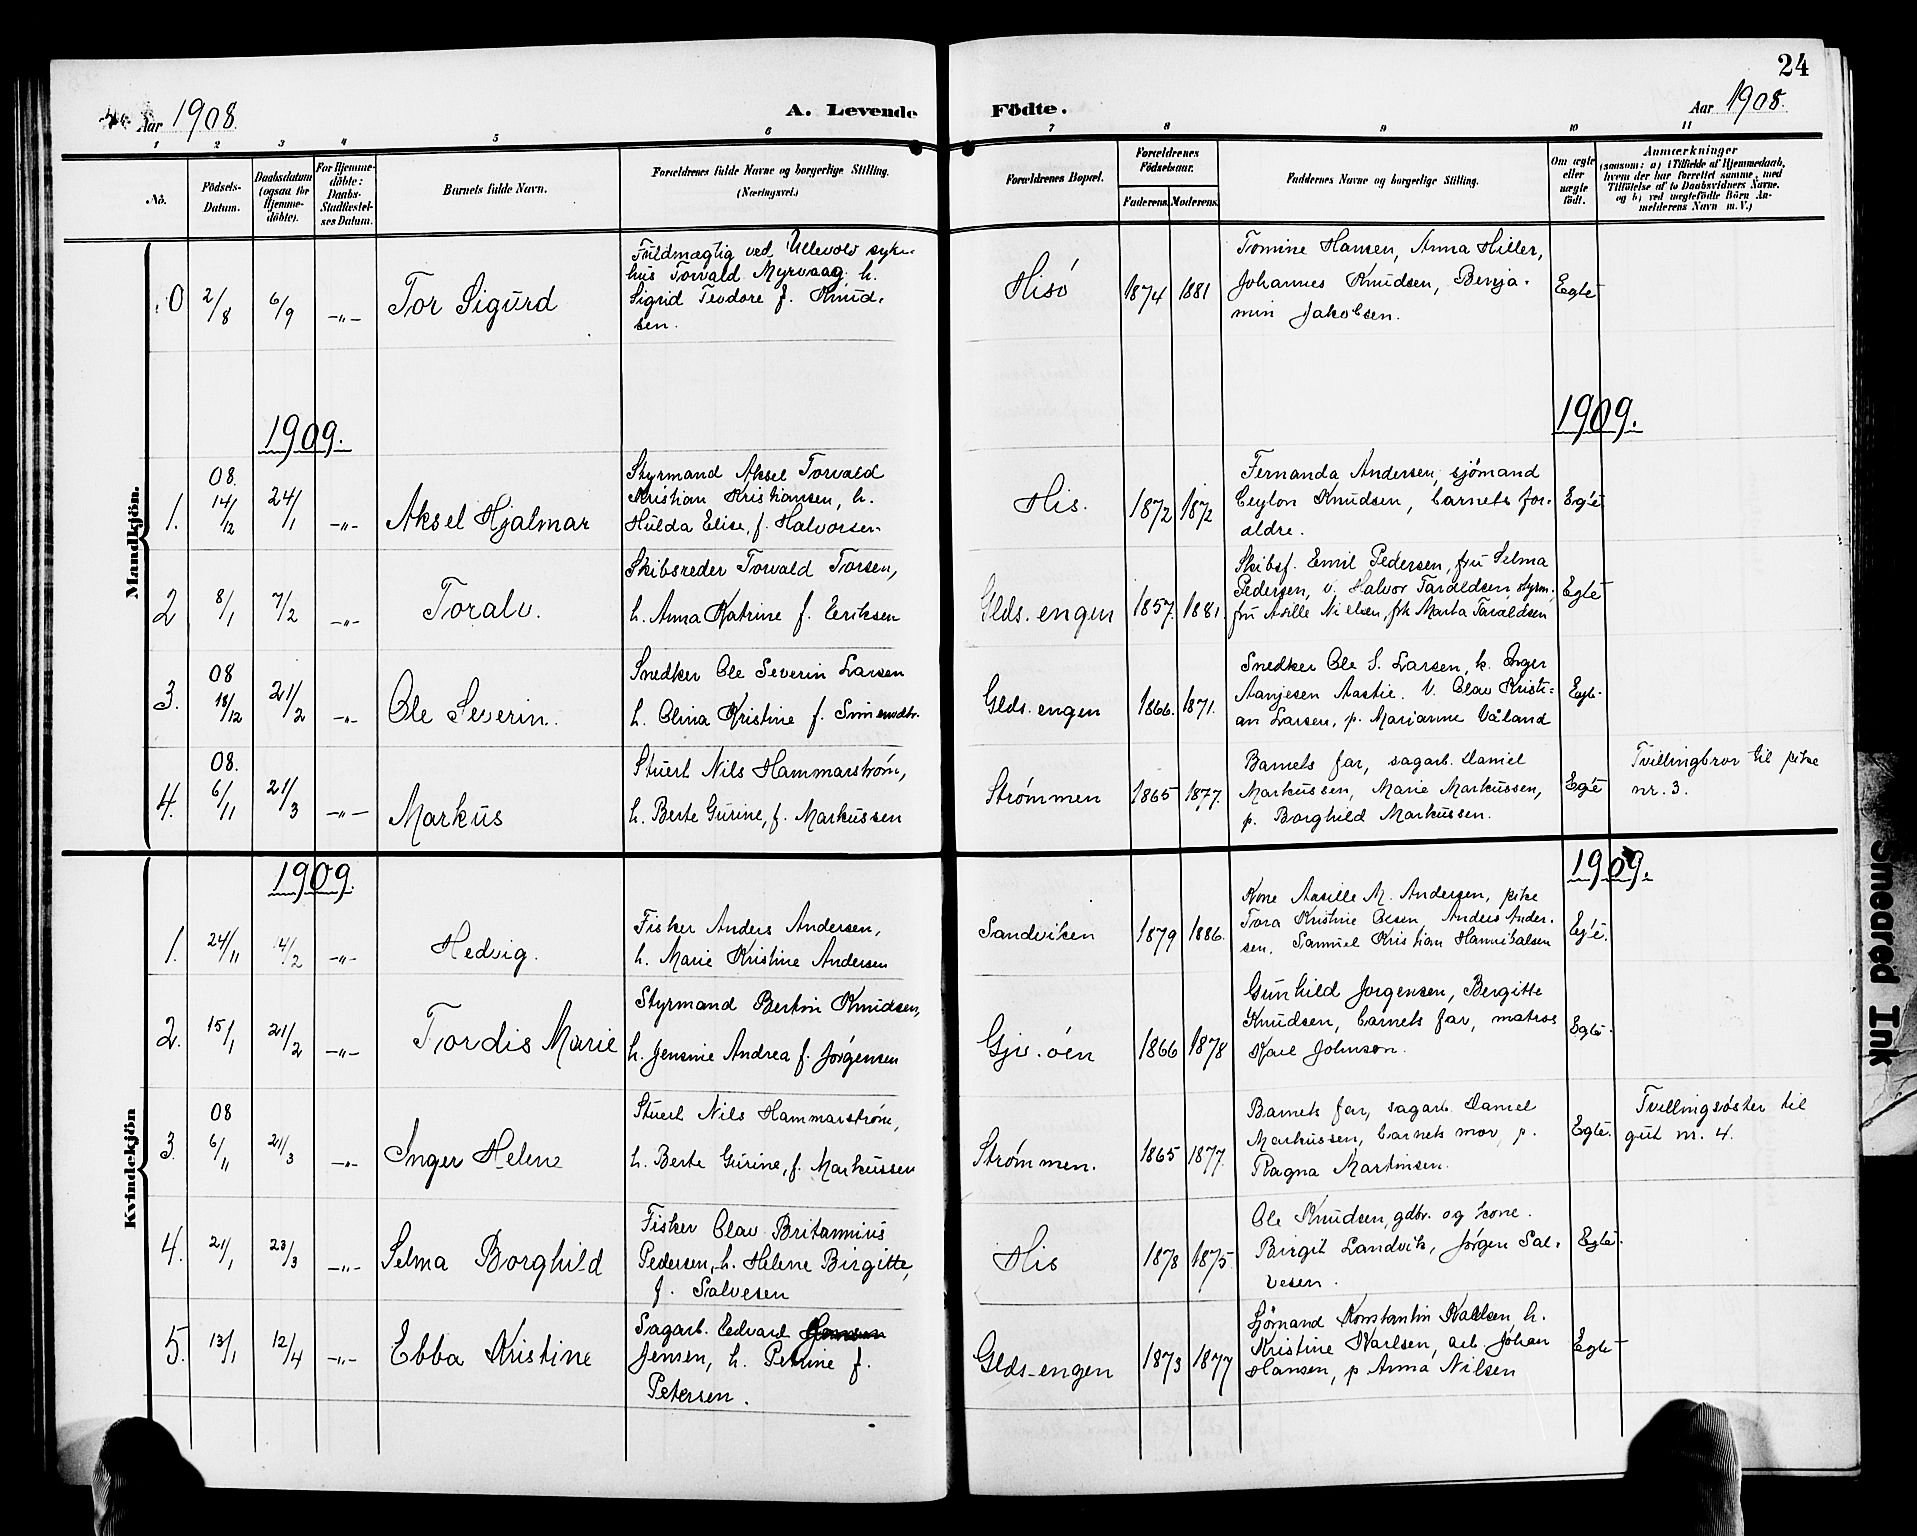 24
Aar 1908.
A. Levende Födte.
Aar 1908.
1 2 3 4 5 6 7 8 9 10 11
No.
Födsels-
Datum.
Daabsdatum
(ogsaa for
Hjemme-
döbte).
For Hjemme-
döbte:
Daabs-
Stadfæstel-
ses Datum.
Barnets fulde Navn.
Forældrenes fulde Navne og borgerlige Stilling.
(Næringsvei.)
Forældrenes Bopæl.
Forældrenes
Födselsaar.
Faderens. Moderens.
Faddernes Navne og borgerlige Stilling.
Om ægte
eller
uægte
födt.
Anmærkninger
(saasom: a) i Tilfælde af Hjemmedaab,
hvem der har forrettet samme, med
Tilföielse af to Daabsvidners Navne,
og b) ved uægtefödte Börn An-
melderens Navn m. V.)
Mandkjön.
0 2/8 6/9 -„- Tor Sigurd
Fuldmægtig ved Ullevold syke-
hus Torvald Myrvaag h.
Sigrid Teodore f. Knud-
sen.
Hisö 1874 1881
Tomine Hansen, Anna Hiller,
Johannes Knudsen, Benja-
min Jakobsen.
Egte
1909. 1909.
1. 08. 14/12 24/1 -„- Aksel Hjalmar
Styrmand Aksel Torvald
Kristian Kristiansen, h.
Hulda Elise, f. Halvorsen
His. 1872 1872
Fernanda Andersen, sjömand
Ceylon Knudsen, barnets for-
ældre.
Egte
2 8/1 7/2 -„- Toralv.
Skibsreder Torvald Torsen,
h. Anna Katrine f. Eeriksen
Glds. engen 1857. 1881.
Skibsf. Emil Pedersen, fru Selma
Pedersen, v. Halvor Taraldsen styrm.,
fru Asille Nielsen, frk Marta Taraldsen
Egte
3. 08 18/12 21/2 -„- Ole Severin.
Snedker Ole Severin Larsen
h. Olina Kristine f.
Glds. engen 1866. 1871.
Snedker Ole S. Larsen, k. Inger
Aanjesen Aastie. V. Olav Kristi-
an Larsen, p. Marianne Våland
Egte.
4. 08. 6/11 21/3 -„- Markus
Stuert Nils Hammarstrøm,
h. Berte Gurine, f. Markussen
Strømmen 1865 1877.
Barnets far, sagarb. Daniel
Markussen, Marie Markussen,
p. Borghild Markussen.
Egte
Tvillingbror til pike
nr. 3.
Kvindekjön
1909. 1909.
1. 24/11 14/2 -„- Hedvig.
Fisker Anders Andersen,
h. Marie Kristine Andersen
Sandviken 1879 1886.
Kone Aasille M. Andersen, pike
Tora Kristine Olesen, Anders Ander-
sen. Samuel Kristian Hannibalsen
Egte.
2. 15/1 21/2 -„- Tordis Marie
Styrmand Bertin Knudsen,
h. Jensine Andrea f. Jørgensen
Gjv. öen 1866 1878
Gunhild Jorgensen, Bergitte
Knudsen, barnets far, matros
Karl Johnson.
Egte.
3. 08 6/11 21/3 -„- Inger Helene
Stuert Nils Hammarstrøm,
h. Berte Gurine, f. Markussen
Strømmen. 1865 1877.
Barnets far, sagarb. Daniel
Markussen, barnets mor, p.
Ragna Martinsen.
Egte.
Tvillingsöster til
gut nr. 4.
4. 21/1 23/3 -„- Selma Borghild
Fisker Olav Britannius
Pedersen, h. Helene Birgitte,
f. Salvesen
His 1878 1875.
Ole Knudsen, gdbr. og kone.
Birgit Landvik, Jørgen Sal-
vesen.
Egte.
5. 13/1 12/4 -„- Ebba Kristine
Sagarb. Edvard
Jensen, h. Petrine f.
Petersen.
Glds-engen 1873 1877
Sjömand Konstantin Karlsen, h.
Kristine Karlsen, arb. Johan
Hansen, p Anna Nilsen
Egte
Smeared Ink